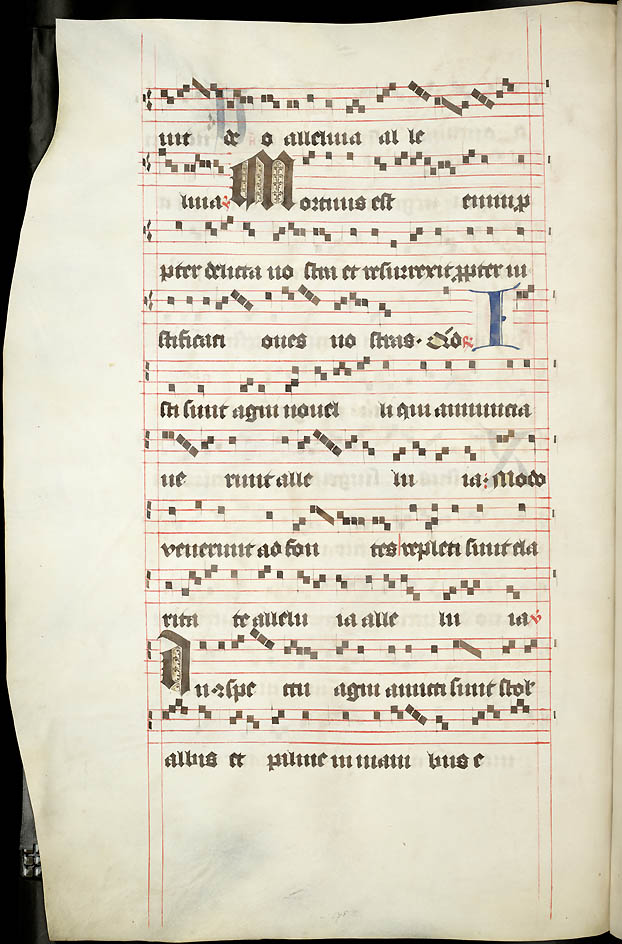 uit de o alleluia al le
luia R Mortuus est enim p
pter delicta no stra et resurrexit ppter iu
stificati ones no stras. Quod R I
sti sunt agni novel li qui annuncia
ve runt alle lu ia: Modo
venerunt ad fon tes repleti sunt cla
rita te allelu ia alle lu ia V
In 9spe ctu agni amicti sunt stol
albis et palme in mani bus e